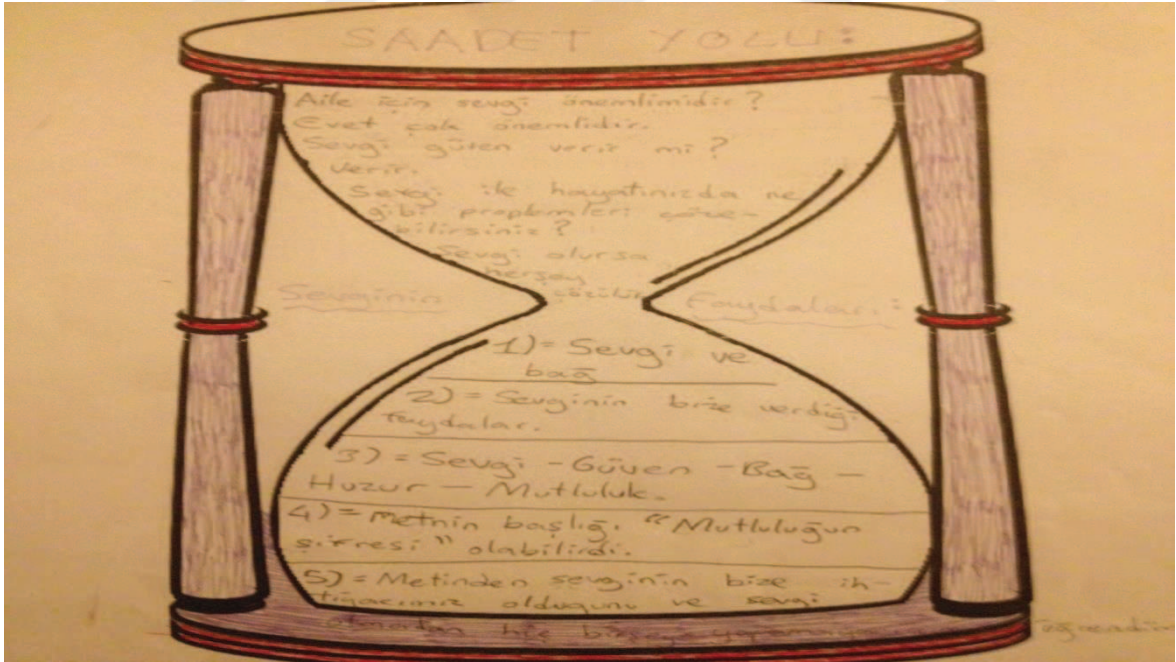 SAADET YOLU:
Aile için sevgi önemlimidir?
Evet çok önemlidir.
Sevgi güven verir mi?
Verir.
Sevgi ile hayatınızda ne
gibi proplemleri çöze-
bilirsiniz?
Sevgi olursa
herşey
çözülür
Sevginin Faydaları:
1)= Sevgi ve
bağ
2)= Sevginin bize verdiği
faydalar.
3)= Sevgi - Güven - Bağ -
Huzur - Mutluluk.
4)= Metnin başlığı "Mutluluğun
şifresi" olabilirdi.
5)= Metinden sevginin bize ih-
tiyacımız olduğunu ve sevgi
olmadan hiç birşey